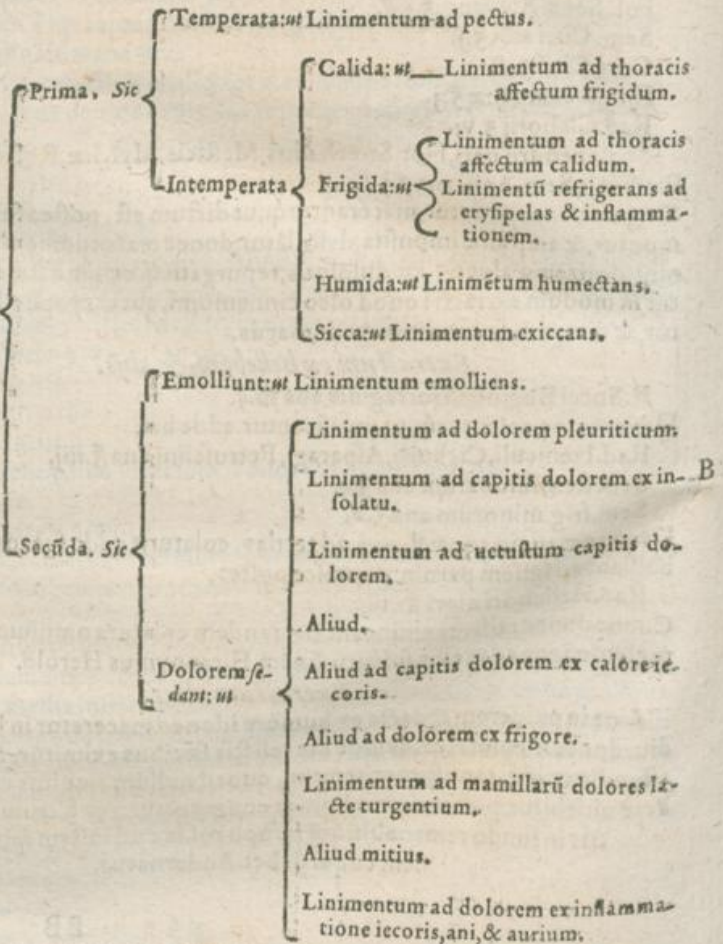 Temperata: ut Linimentum ad pectus.
Prima. Sic
Calida: ut Linimentum ad thoracis
affectum frigidum.
Intemperata
Frigida: ut
Linimentum ad thoracis
affectum calidum.
Linimentū refrigerans ad
erysipelas & inflamma-
tionem.
Humida: ut Linimētum humectans.
Sicca: ut Linimentum exiccans.
Emolliunt: ut Linimentum emolliens.
Secūda. Sic
Dolorem se-
dant: ut
Linimentum ad dolorem pleuriticum.
Linimentum ad capitis dolorem ex in-
solatu.
B
Linimentum ad uetustum capitis do-
lorem.
Aliud.
Aliud ad capitis dolorem ex calore ie-
coris.
Aliud ad dolorem ex frigore.
Linimentum ad mamillarū dolores la-
cte turgentium.
Aliud mitius.
Linimentum ad dolorem ex inflamma-
tione iecoris, ani, & aurium.